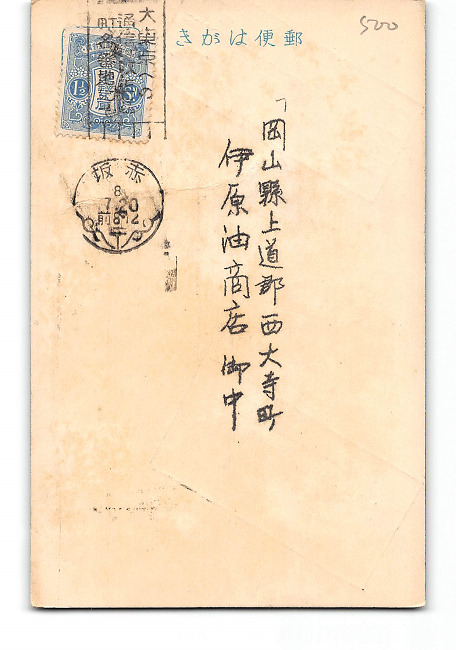 500
郵便はがき
大東京への
通信は
町名番地を
1½
赤坂
8
7.20
前8-12
岡山縣上道郡西大寺町
伊原油商店 御中